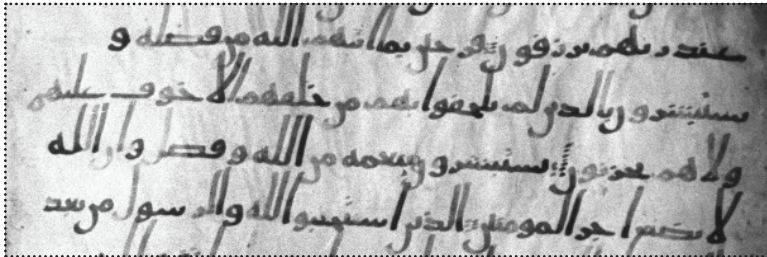 عند ربهم يرزقون فرحين بما اتهم الله من فضله و
يستبشرون بالذين لم يلحقوا بهم من خلفهم الا خوف عليهم
ولا هم يحزنون يستبشرون بنعمه من الله وفضل وان الله
لا يضيع اجر المومنين الذين استجبوا لله والرسول من بعد